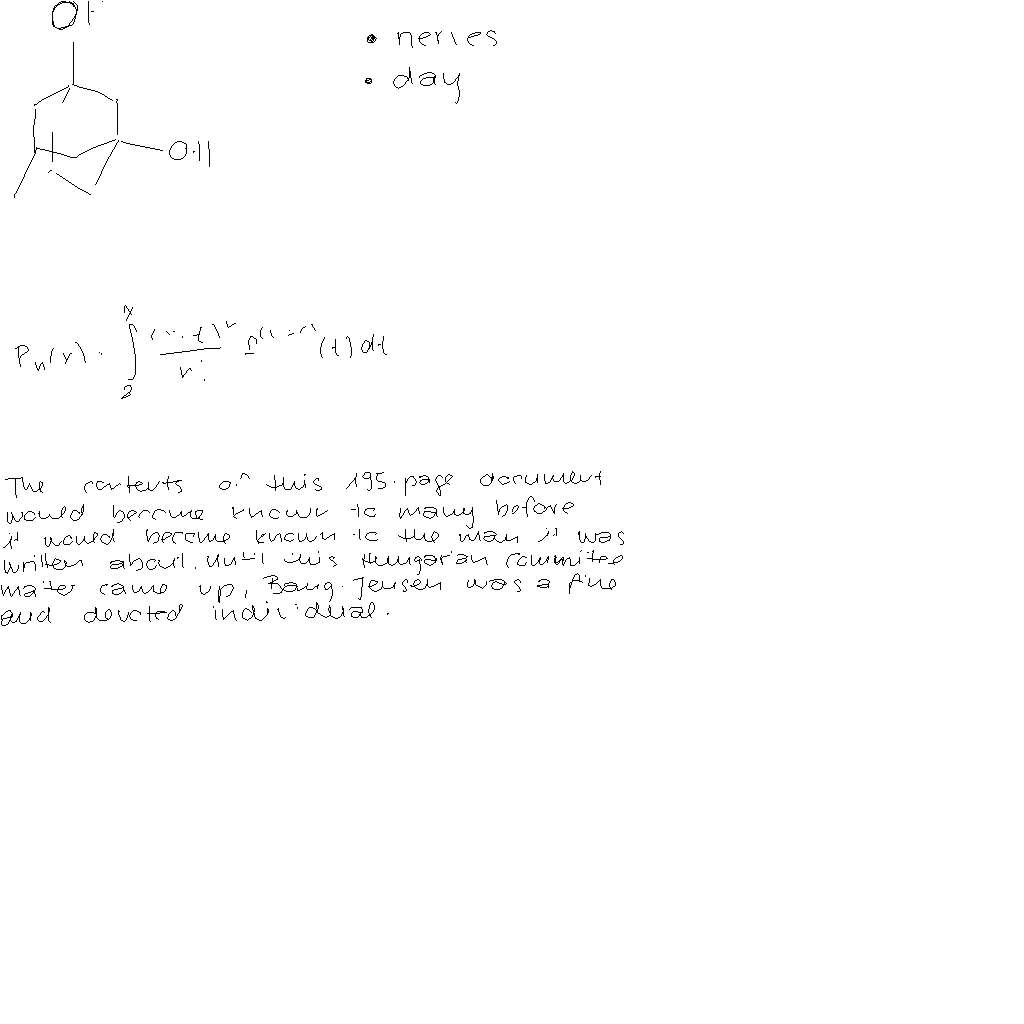 OH
OH
• series
• day
The contents of this 195-page document
would become known to many before
it would become known to the man it was
written about. Until this Hungarian committee
matter came up, Bang-Jensen was a fine
and devoted individual.